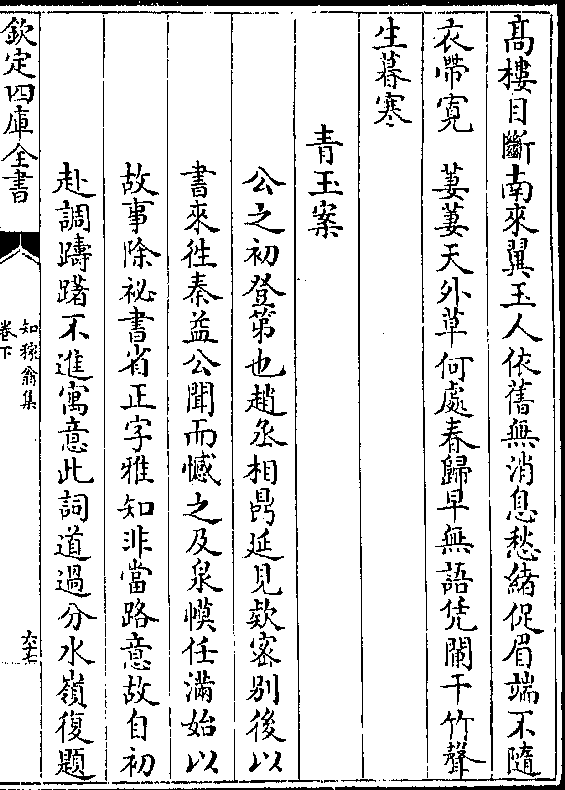 髙樓目斷南來翼玉人依舊無消息愁緒促眉端不隨
衣帶寛　萋萋天外草何處春歸早無語凭闌干竹聲
生暮寒
青玉案
公之初登第也趙丞相鼎延見欵宻别後以
書來徃秦益公聞而憾之及泉幙任滿始以
故事除祕書省正字雅知非當路意故自初
赴調躊躇不進寓意此詞道過分水嶺復題
欽定四庫全書
知稼翁集
卷下